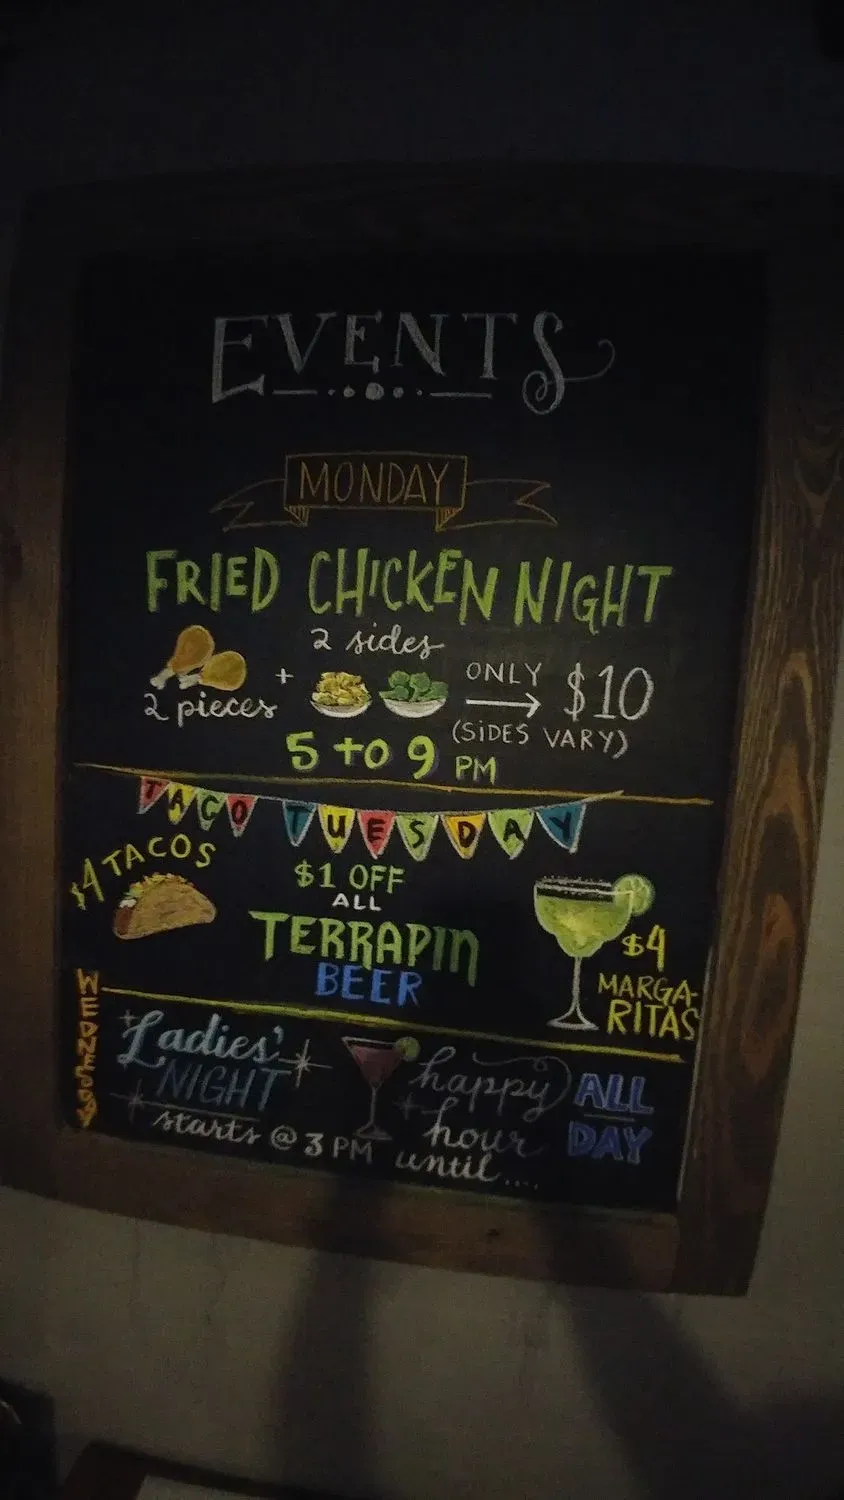 EVENTS
MONDAY
FRIED CHICKEN NIGHT
2 sides
2 pieces + ONLY → $10
(SIDES VARY)
5 to 9 PM
TACO TUESDAY
$4 TACOS
$1 OFF
ALL
TERRAPIN
BEER
$4
MARGA-
RITAS
WEDNESDAY
Ladies'
NIGHT
starts @ 3 PM
happy
hour
until....
ALL
DAY